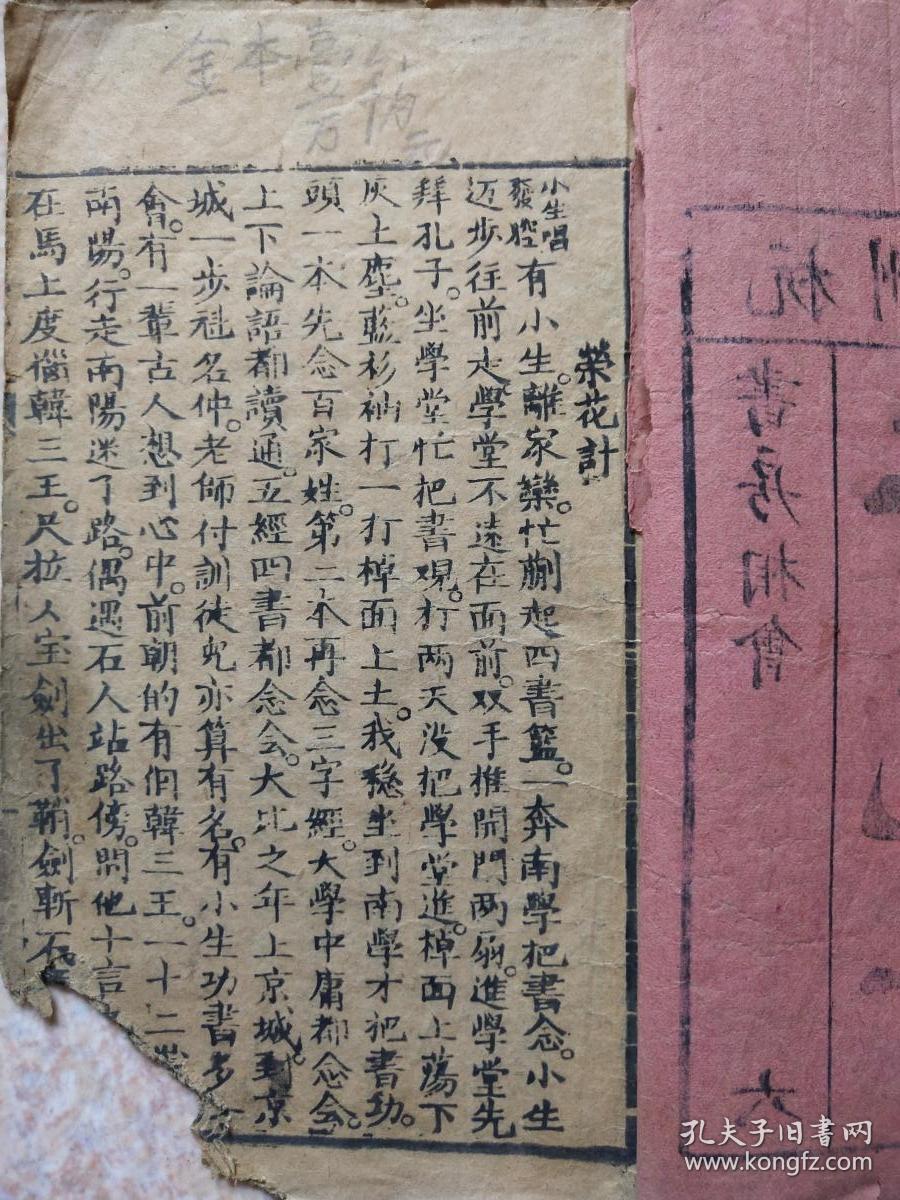 金本壹
万
元
榮花計
小生唱
發腔
有小生。離家欒。忙蒯起四書籃。一奔南學把書念。小生
迈步往前走。學堂不遠在面前。双手推開門两扇。進學堂先
拜孔子。坐學堂忙把書观。打两天没把學堂進。棹面上蕩下
灰土塵。藍衫袖打一打棹面上土。我穩坐到南學才把書功。
頭一本先念百家姓。第二本再念三字經。大學中庸都念会。
上下論語都讀通。五經四書都念会。大比之年上京城。到京
城一步魁名仲。老師付訓徒兒亦算有名。有小生功書多
會。有一輩古人想到心中。前朝的有個韓三王。一十二
南陽。行走南陽迷了路。偶遇石人站路傍。問他十言
在馬上度惱韓三王。尺拉人宝劍出了鞘。劍斬石
杭
書房相會
六
孔夫子旧書网
www.kongfz.com